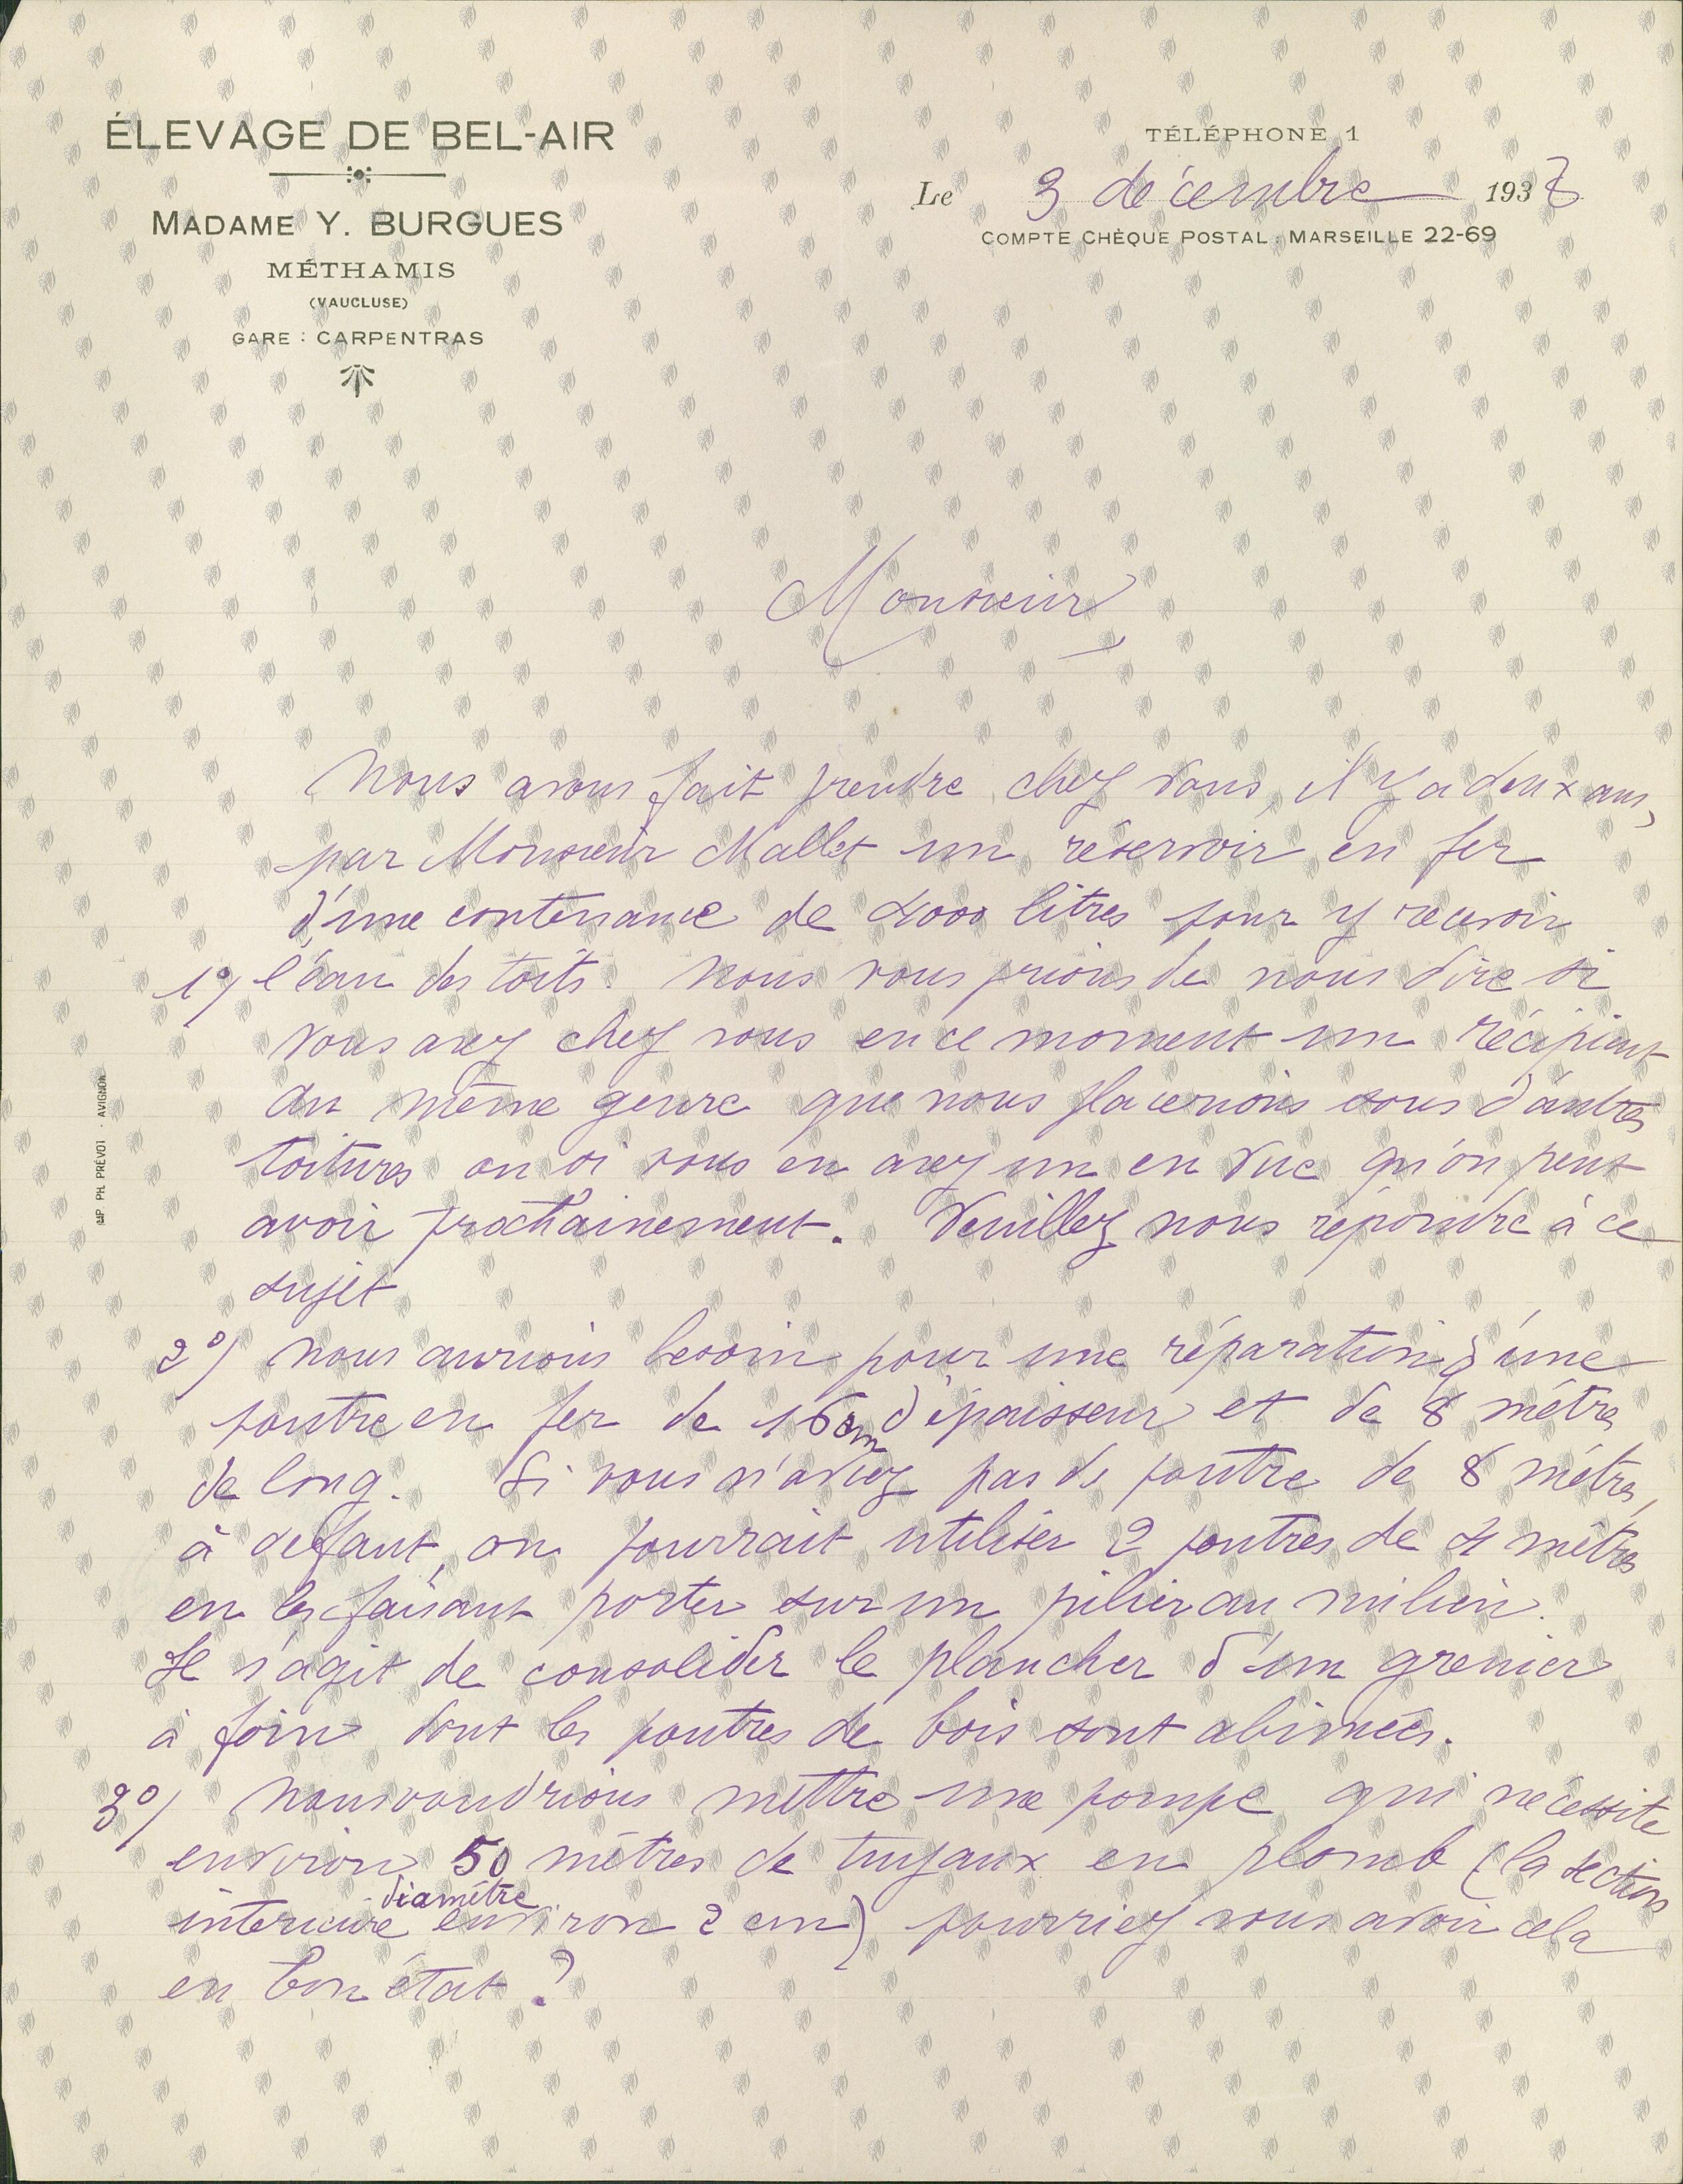 ÉLEVAGE DE BEL-AIR
MADAME Y. BURGUES
MÉTHAMIS
(VAUCLUSE)
GARE : CARPENTRAS
TÉLÉPHONE 1
Le 3 décembre 1938
COMPTE CHÈQUE POSTAL : MARSEILLE 22-69
Monsieur
Nous avons fait prendre chez vous, il y a deux ans,
par Monsieur Mallet un réservoir en fer
d'une contenance de 4000 litres pour y recevoir
1º/ l'eau des toits. Nous vous prions de nous dire si
vous avez chez vous en ce moment un récipient
du même genre que nous placerions sous d'autres
toitures ou si vous en avez un en vue qu'on peut
avoir prochainement. Veuillez nous répondre à ce
sujet
2º/ Nous aurions besoin pour une réparation d'une
poutre en fer de 16 cm d'épaisseur et de 8 mètres
de long. Si vous n'aviez pas de poutre de 8 mètres,
à deffaut, on pourrait utiliser 2 poutres de 4 mètres
en les faisant porter sur un pilier au milieu.
Il s'agit de consolider le plancher d'un grenier
à foin dont les poutres de bois sont abimées.
3º/ Nous voudrions mettre une pompe qui nécessite
environ 50 mètres de tuyaux en plomb (la section
diamètre
intérieure environ 2 cm) pourriez vous avoir cela
en bon état ?
IMP. PH. PRÉVOT - AVIGNON